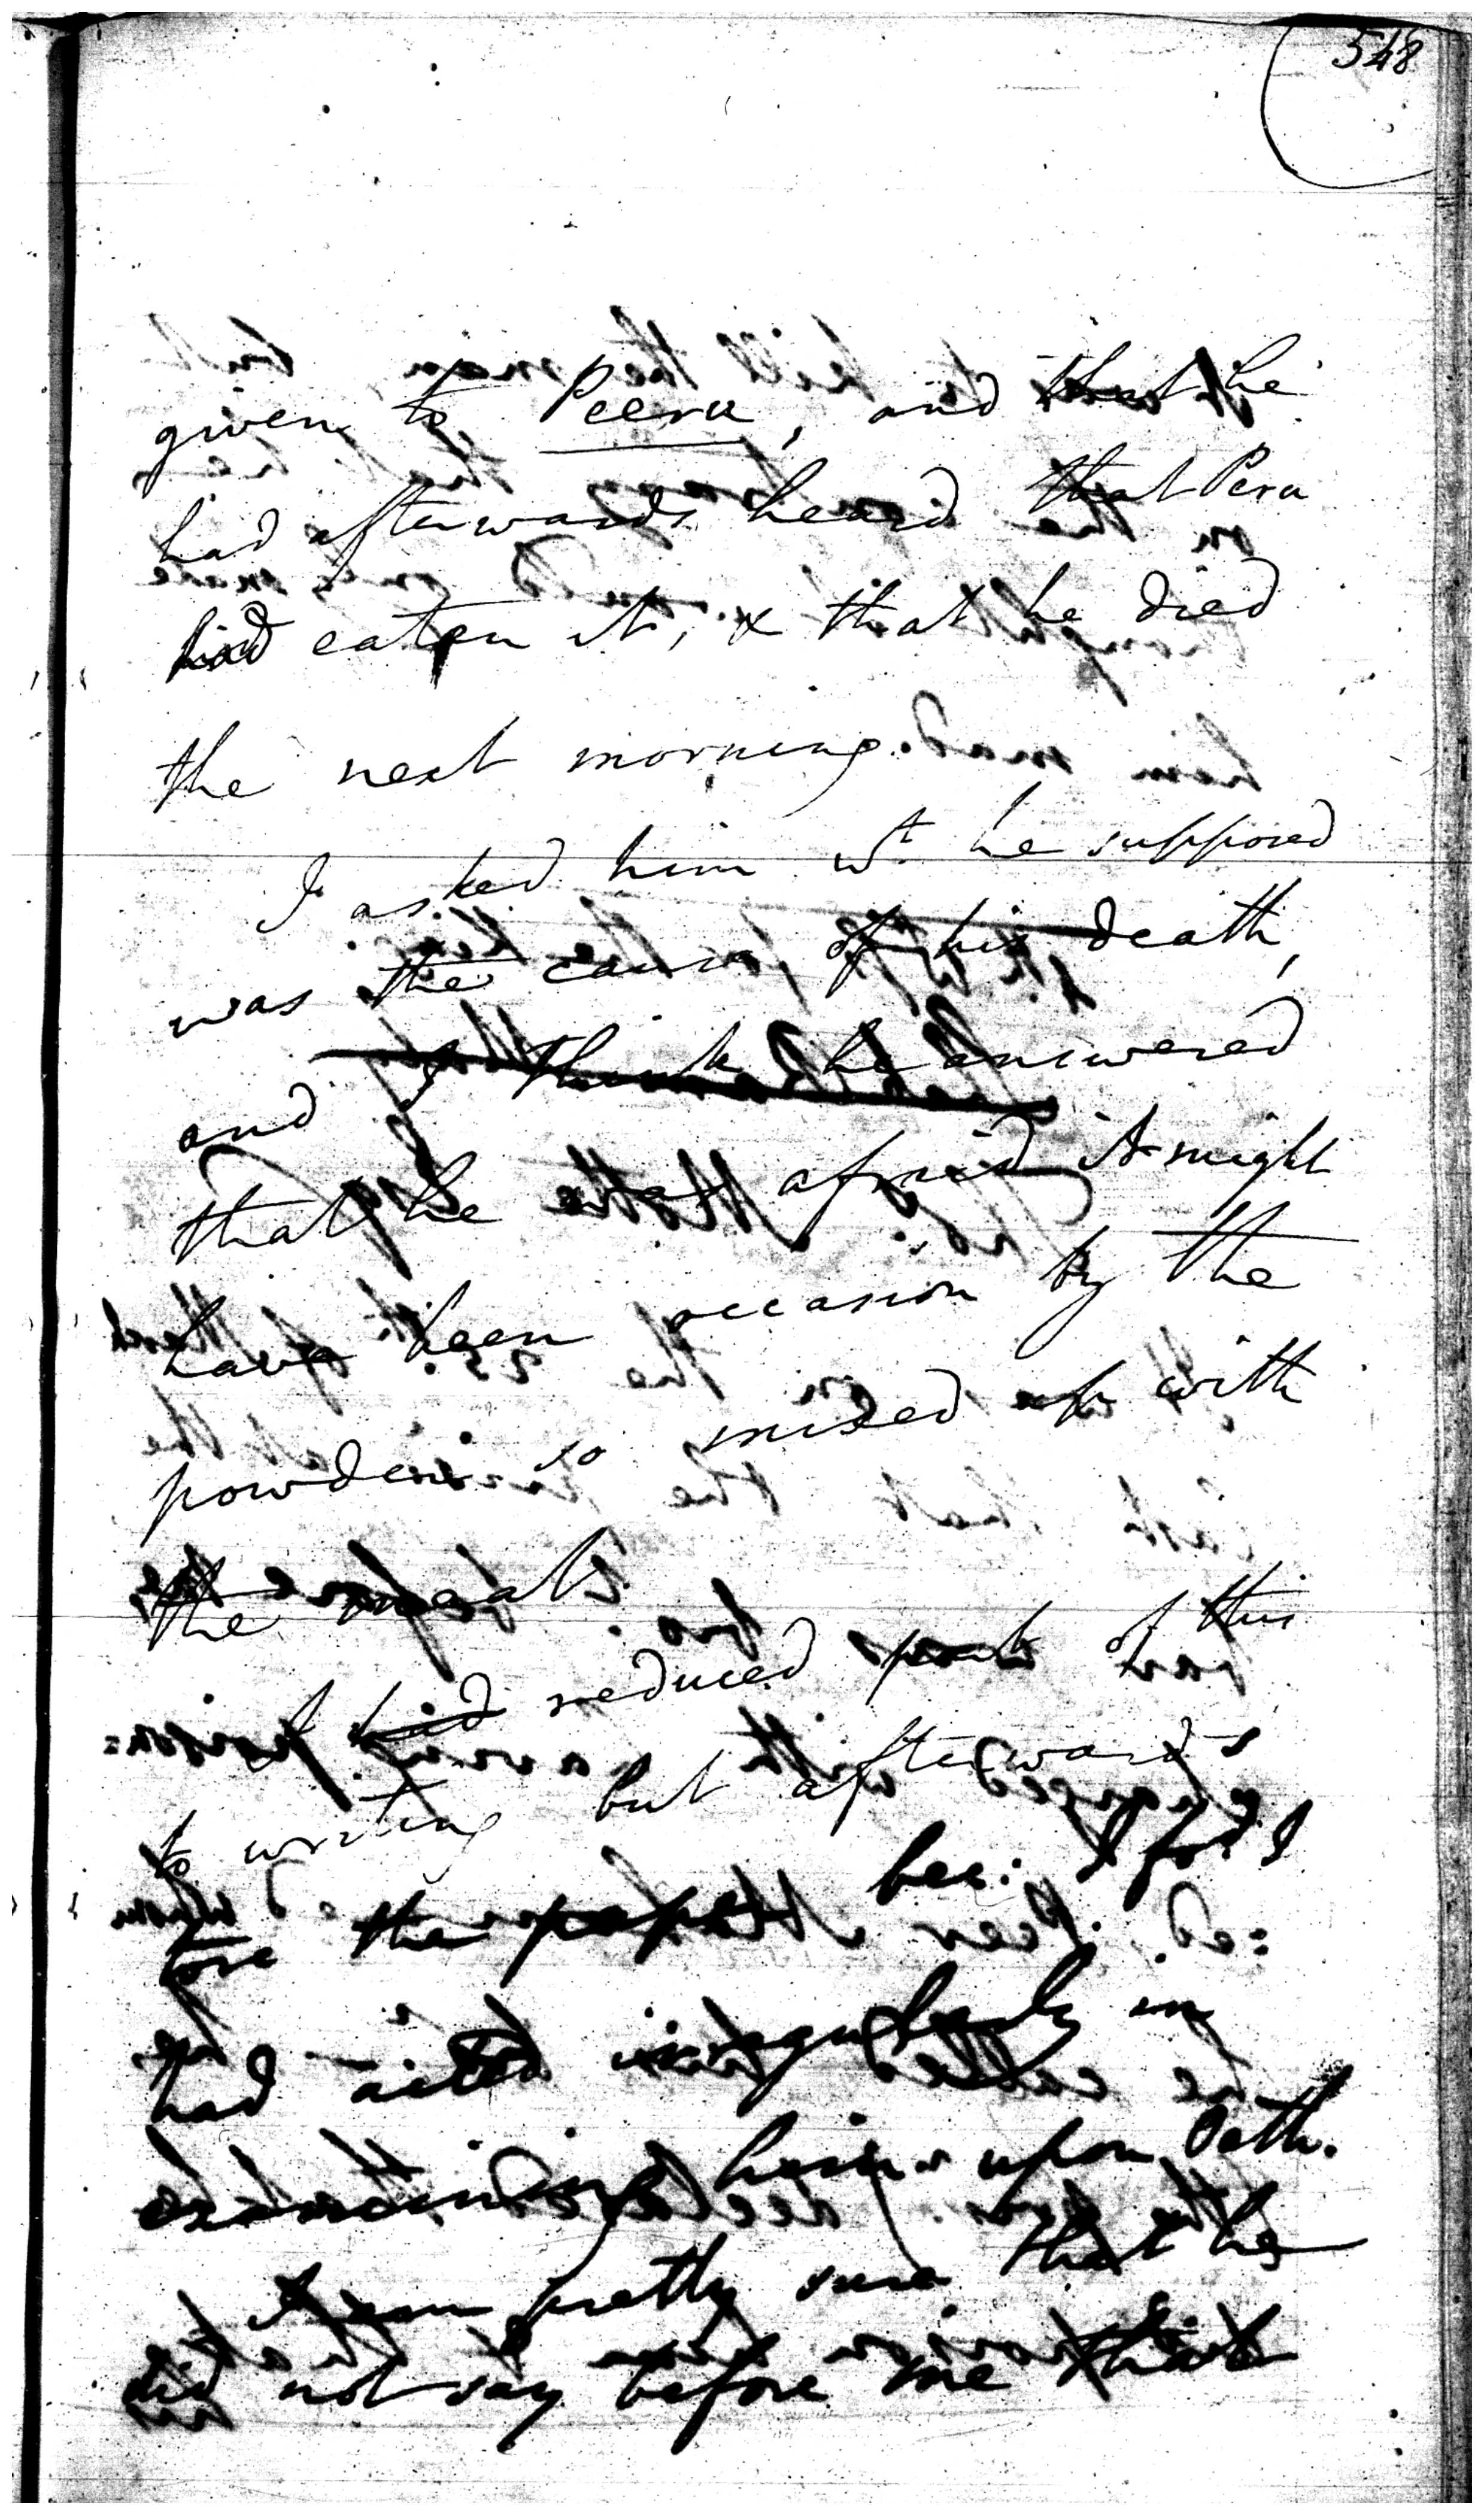 548
given to Peeru, and that he
had afterwards heard that Peru
had eaten it, & that he died
the next morning.
I asked him wt. he supposed
was the cause of his death,
and I think he answered
that he was afraid it might
have been occasion by the
powders so mixed up with
the meal.
I had reduced part of this
to writing but afterwards
tore the paper bec:
had acted irregularly in
examining him upon Oath.
I am pretty sure that he
did not say before me that